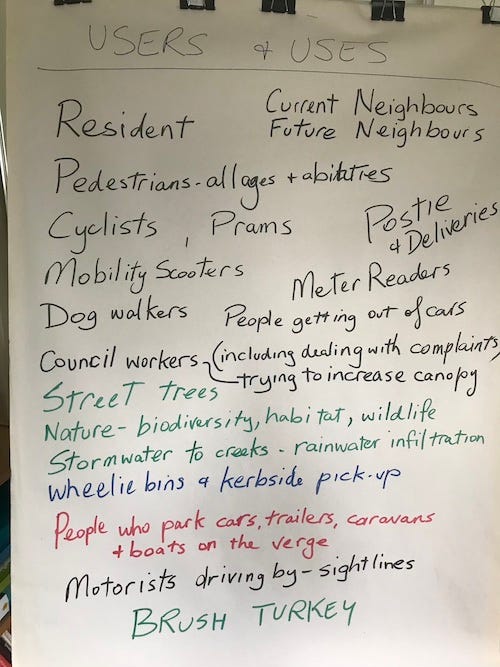 USERS & USES
Resident
Current Neighbours
Future Neighbours
Pedestrians - all ages + abilities
Cyclists, Prams
Postie
& Deliveries
Mobility Scooters
Meter Readers
Dog walkers
People getting out of cars
Council workers - (including dealing with complaints,
trying to increase canopy
STREET trees
Nature - biodiversity, habitat, wildlife
Stormwater to creeks - rainwater infiltration
Wheelie bins & kerbside pick-up
People who park cars, trailers, caravans
+ boats on the verge
Motorists driving by - sightlines
BRUSH TURKEY